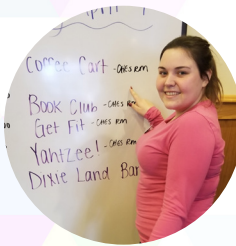 Coffee Cart - CHES RM
Book Club - CHES RM
Get Fit - CHES RM
Yahtzee! - CHES RM
Dixie Land Ban